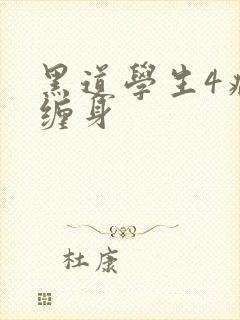 黑道學生4
缠身
杜康